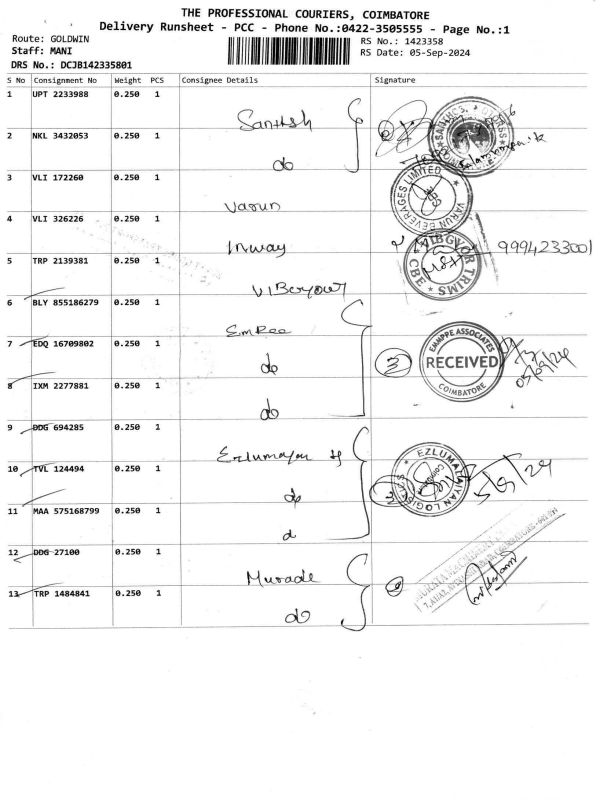 THE PROFESSIONAL COURIERS, COIMBATORE
Delivery Runsheet - PCC - Phone No.:0422-3505555 - Page No.:1
Route: GOLDWIN
Staff: MANI
DRS No.: DCJB142335801
RS No.: 1423358
RS Date: 05-Sep-2024
S No Consignment No Weight PCS Consignee Details Signature
1 UPT 2233988 0.250 1
Santhsh
2 NKL 3432053 0.250 1
do
3 VLI 172260 0.250 1
Varun
VARUN BEVERAGES LIMITED
4 VLI 326226 0.250 1
Inway
9994233001
5 TRP 2139381 0.250 1
VIBGYOR TRIMS
CBE
6 BLY 855186279 0.250 1
EmPee
7 EDQ 16709802 0.250 1
do
3
EMMPPE ASSOCIATES
RECEIVED
COIMBATORE
05/09/24
8 IXM 2277881 0.250 1
do
9 DDG 694285 0.250 1
Ezlumayan
EZLUMALAYAN LOGISTICS
10 TVL 124494 0.250 1
do
3
5/9/24
11 MAA 575168799 0.250 1
d
12 DDG 27100 0.250 1
Murade
13 TRP 1484841 0.250 1
do